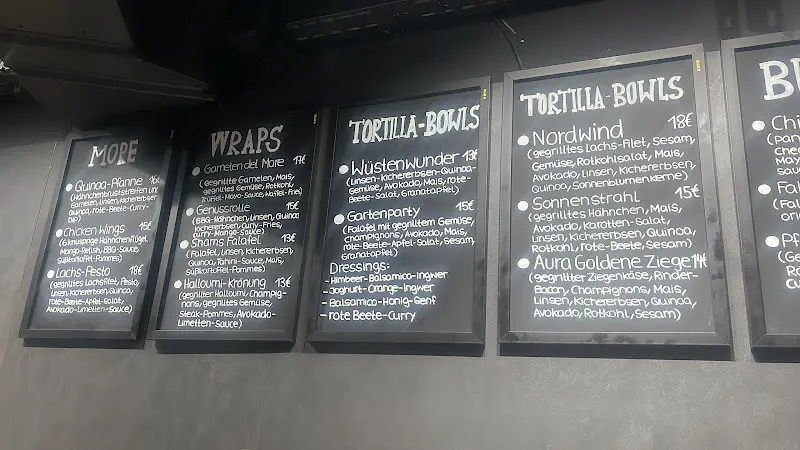 MORE
Quinoa-Pfanne
(Hähnchenbruststreifen und
Garnelen, Linsen, Kichererbsen
Quinoa, rote-Beete-Curry-
Dip)
Chicken Wings 15€
(6 knusprige Hähnchenflügel,
Mango-Relish, BBQ-Sauce,
süßkartoffel-Pommes)
Lachs-Pesto 18€
(gegrilltes Lachsfilet, Pesto,
Linsen, Kichererbsen, Quinoa,
rote-Beete-Apfel-Salat,
Avokado-Limetten-Sauce)
WRAPS
Garnelen del Mare 17€
(gegrillte Garnelen, Mais,
gegrilltes Gemüse, Rotkohl,
Trüffel-Mayo-Sauce, Waffel-Fries)
Genussrolle 15€
(BBQ-Hähnchen, Linsen, Quinoa
Kichererbsen, Curly-Fries,
Curry-Mango-Sauce)
Shams Falafel 13€
(Falafel, Linsen, Kichererbsen
Quinoa, Tahini-Sauce, Mais,
süßkartoffel-Pommes)
Halloumi-Krönung 13€
(gegrillter Halloumi, Champig-
nons, gegrilltes Gemüse,
Steak-Pommes, Avokado-
Limetten-Sauce)
TORTILLA-BOWLS
Wüstenwunder 13€
(Linsen-Kichererbsen-Quinoa-
Gemüse, Avokado, Mais, rote-
Beete, Salat, Granatapfel)
Gartenparty 15€
(Falafel mit gegrilltem Gemüse,
champignons, Avokado, Mais,
rote-Beete-Apfel-Salat, Sesam,
Granatapfel)
Dressings:
- Himbeer-Balsamico-Ingwer
- Joghurt-Orange-Ingwer
- Balsamico-Honig-Senf
- rote Beete-Curry
TORTILLA-BOWLS
Nordwind 18€
(gegrilltes Lachs-Filet, Sesam,
Gemüse, Rotkohlsalat, Mais,
Avokado, Linsen, Kichererbsen,
Quinoa, Sonnenblumenkerne)
Sonnenstrahl 15€
(gegrilltes Hähnchen, Mais,
Avokado, Karotten-Salat,
Linsen, Kichererbsen, Quinoa,
Rotkohl, rote-Beete, Sesam)
Aura Goldene Ziege 14€
(gegrillter Ziegenkäse, Rinder-
Bacon, Champignons, Mais,
Linsen, Kichererbsen, Quinoa,
Avokado, Rotkohl, Sesam)